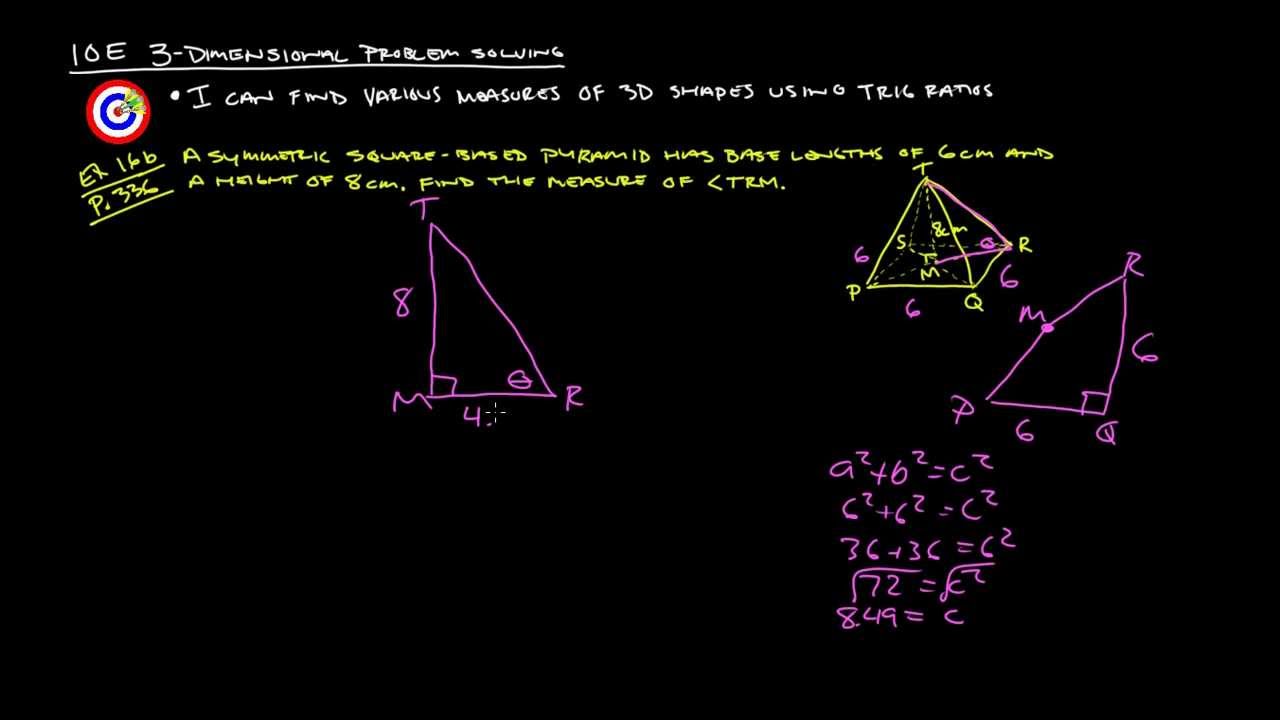 10E 3-DIMENSIONAL PROBLEM SOLVING
• I CAN FIND VARIOUS MEASURES OF 3D SHAPES USING TRIG RATIOS
EX 16b A SYMMETRIC SQUARE-BASED PYRAMID HAS BASE LENGTHS OF 6cm AND
P. 336 A HEIGHT OF 8cm. FIND THE MEASURE OF <TRM.
T
8
M
θ
R
4.
T
8cm
S
θ
R
6
M
6
P
Q
6
R
M
6
P
6
Q
a²+b²=c²
6²+6²=c²
36+36=c²
√72=√c²
8.49=c